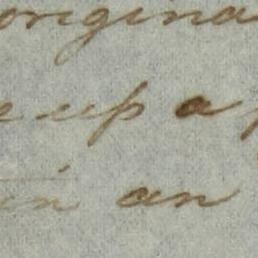 origina
up a
in an